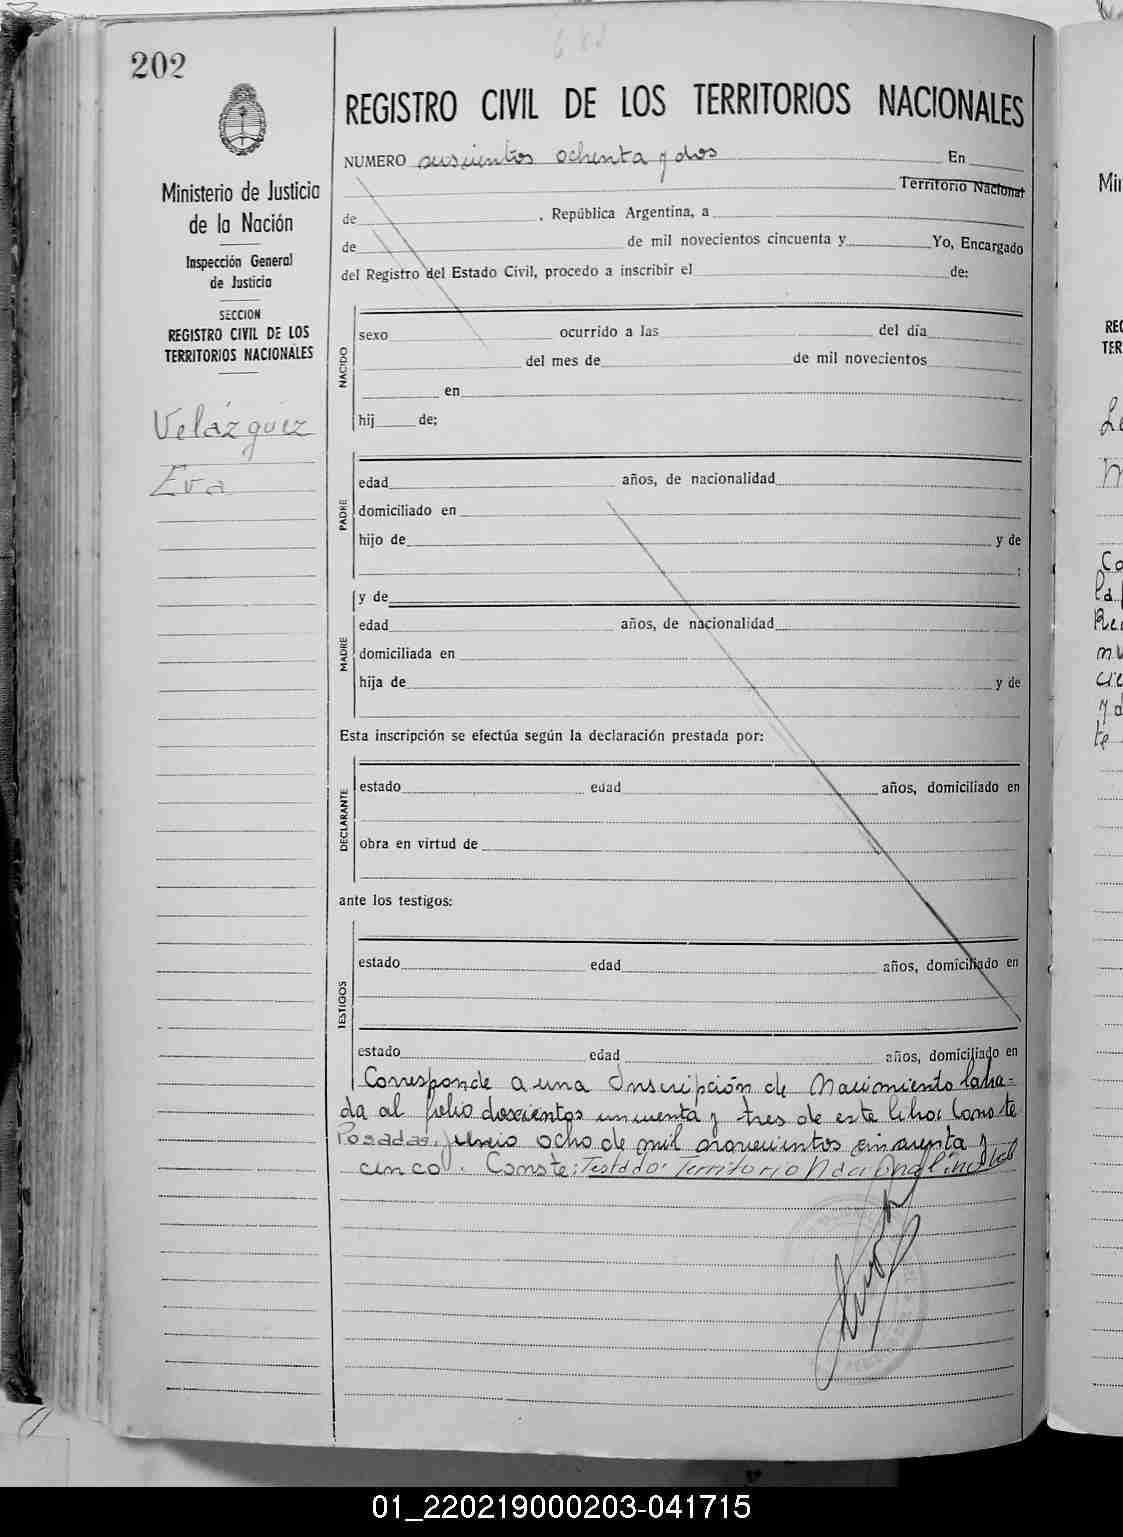 202
Ministerio de Justicia
de la Nación
Inspección General
de Justicia
SECCION
REGISTRO CIVIL DE LOS
TERRITORIOS NACIONALES
Velázquez
Eva
REGISTRO CIVIL DE LOS TERRITORIOS NACIONALES
NUMERO seiscientos ochenta y dos En
Territorio Nacional
de , República Argentina, a
de de mil novecientos cincuenta y Yo, Encargado
del Registro del Estado Civil, procedo a inscribir el de:
NACIDO
sexo ocurrido a las del día
del mes de de mil novecientos
en
hij de:
PADRE
edad años, de nacionalidad
domiciliado en
hijo de y de
;
y de
MADRE
edad años, de nacionalidad
domiciliada en
hija de y de
Esta inscripción se efectúa según la declaración prestada por:
DECLARANTE
estado edad años, domiciliado en
obra en virtud de
ante los testigos:
TESTIGOS
estado edad años, domiciliado en
estado edad años, domiciliado en
Corresponde a una Inscripción de Nacimiento labra-
da al folio doscientos cincuenta y tres de este libro: Conste
Posadas, Junio ocho de mil novecientos cincuenta y
cinco. Conste: Testado: Territorio Nacional:
01_220219000203-041715